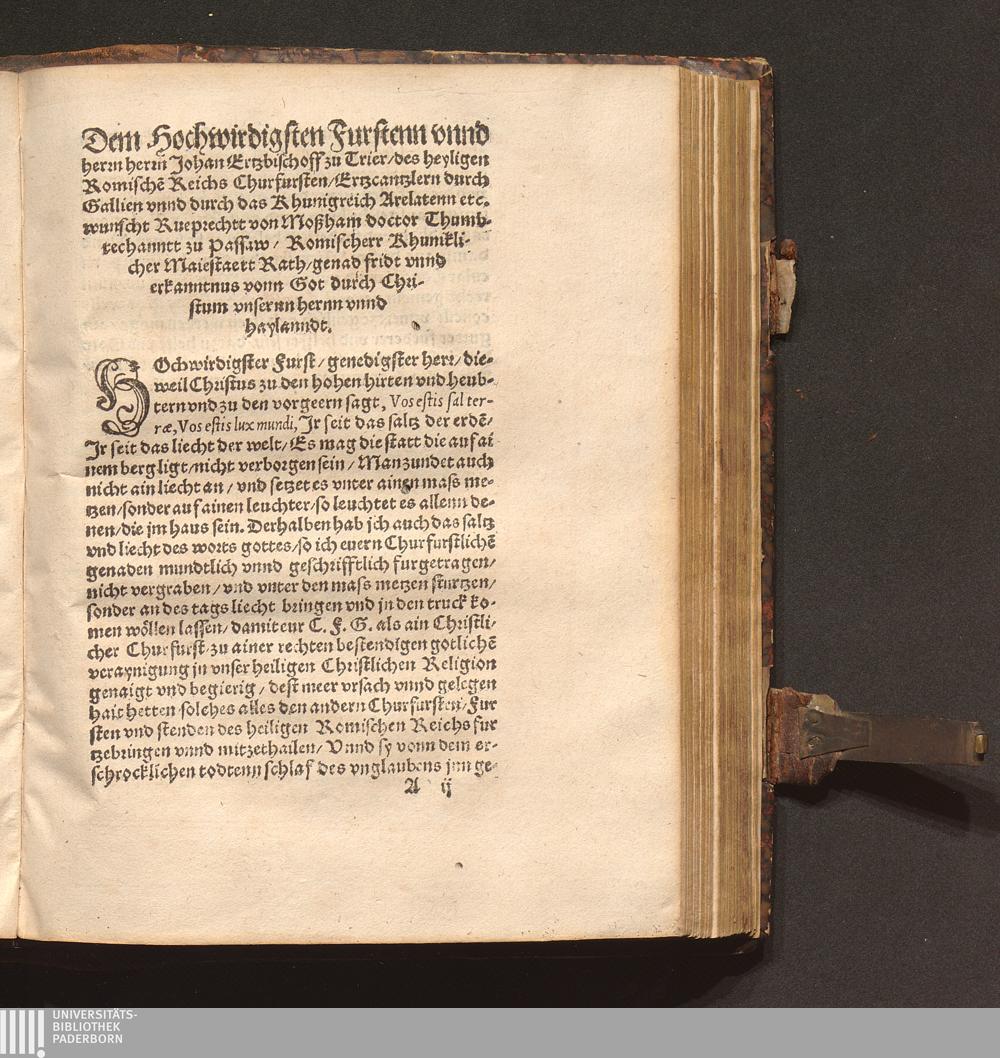 Dem Hochwirdigsten Furstenn vnnd
herrn herrn Johan Ertzbischoff zu Trier/des heyligen
Romischē Reichs Churfursten/Ertzcantzlern durch
Gallien vnnd durch das Khunigreich Arelatenn etc.
wunscht Rueprechtt von Moßham doctor Thumb-
techanntt zu Passaw/ Romischerr Khunikli-
cher Maiestaett Rath/genad fridt vnnd
erkanntnus vonn Got durch Chri-
stum vnsernn hernn vnnd
haylanndt.
HOchwirdigster Furst/genedigster herr/die-
weil Christus zu den hohen hirten vnd heub-
tern vnd zu den vorgeern sagt, Vos estis sal ter-
ræ, Vos estis lux mundi, Jr seit das saltz der erdē/
Jr seit das liecht der welt/Es mag die statt die auf ai
nem berg ligt/nicht verborgen sein/Man zundet auch
nicht ain liecht an/vnd setzet es vnter ainen mass me-
tzen/sonder auf ainen leuchter/so leuchtet es allenn de-
nen/die jm haus sein. Derhalben hab jch auch das saltz
vnd liecht des worts gottes/so ich euern Churfurstlichē
genaden mundtlich vnnd geschrifftlich furgetragen/
nicht vergraben/vnd vnter den mass metzen sturtzen/
sonder an des tags liecht bringen vnd jn den truck ko-
men wöllen lassen/damit eur C. F. G. als ain Christli-
cher Churfurst/zu ainer rechten bestendigen gotlichē
veraynigung jn vnser heiligen Christlichen Religion
genaigt vnd begierig/dest meer vrsach vnnd gelegen
hait hetten solches alles den andern Churfursten/Fur
sten vnd stenden des heiligen Romischen Reichs fur
tzebringen vnnd mitzethailen/Vnnd sy vonn dem er-
schrocklichen todtenn schlaf des vnglaubens jnn ge-
A ij
UNIVERSITÄTS-
BIBLIOTHEK
PADERBORN